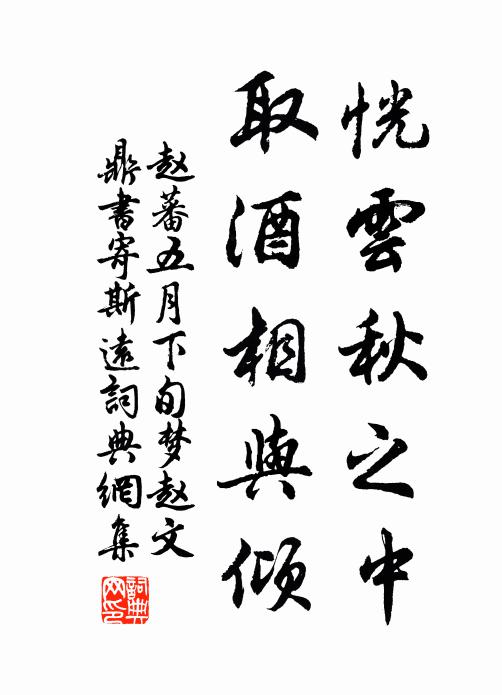 恍雲秋之中
取酒相與傾
赵蕃五月下旬梦赵文
鼎書寄斯遠詞典網集
詞典
网印